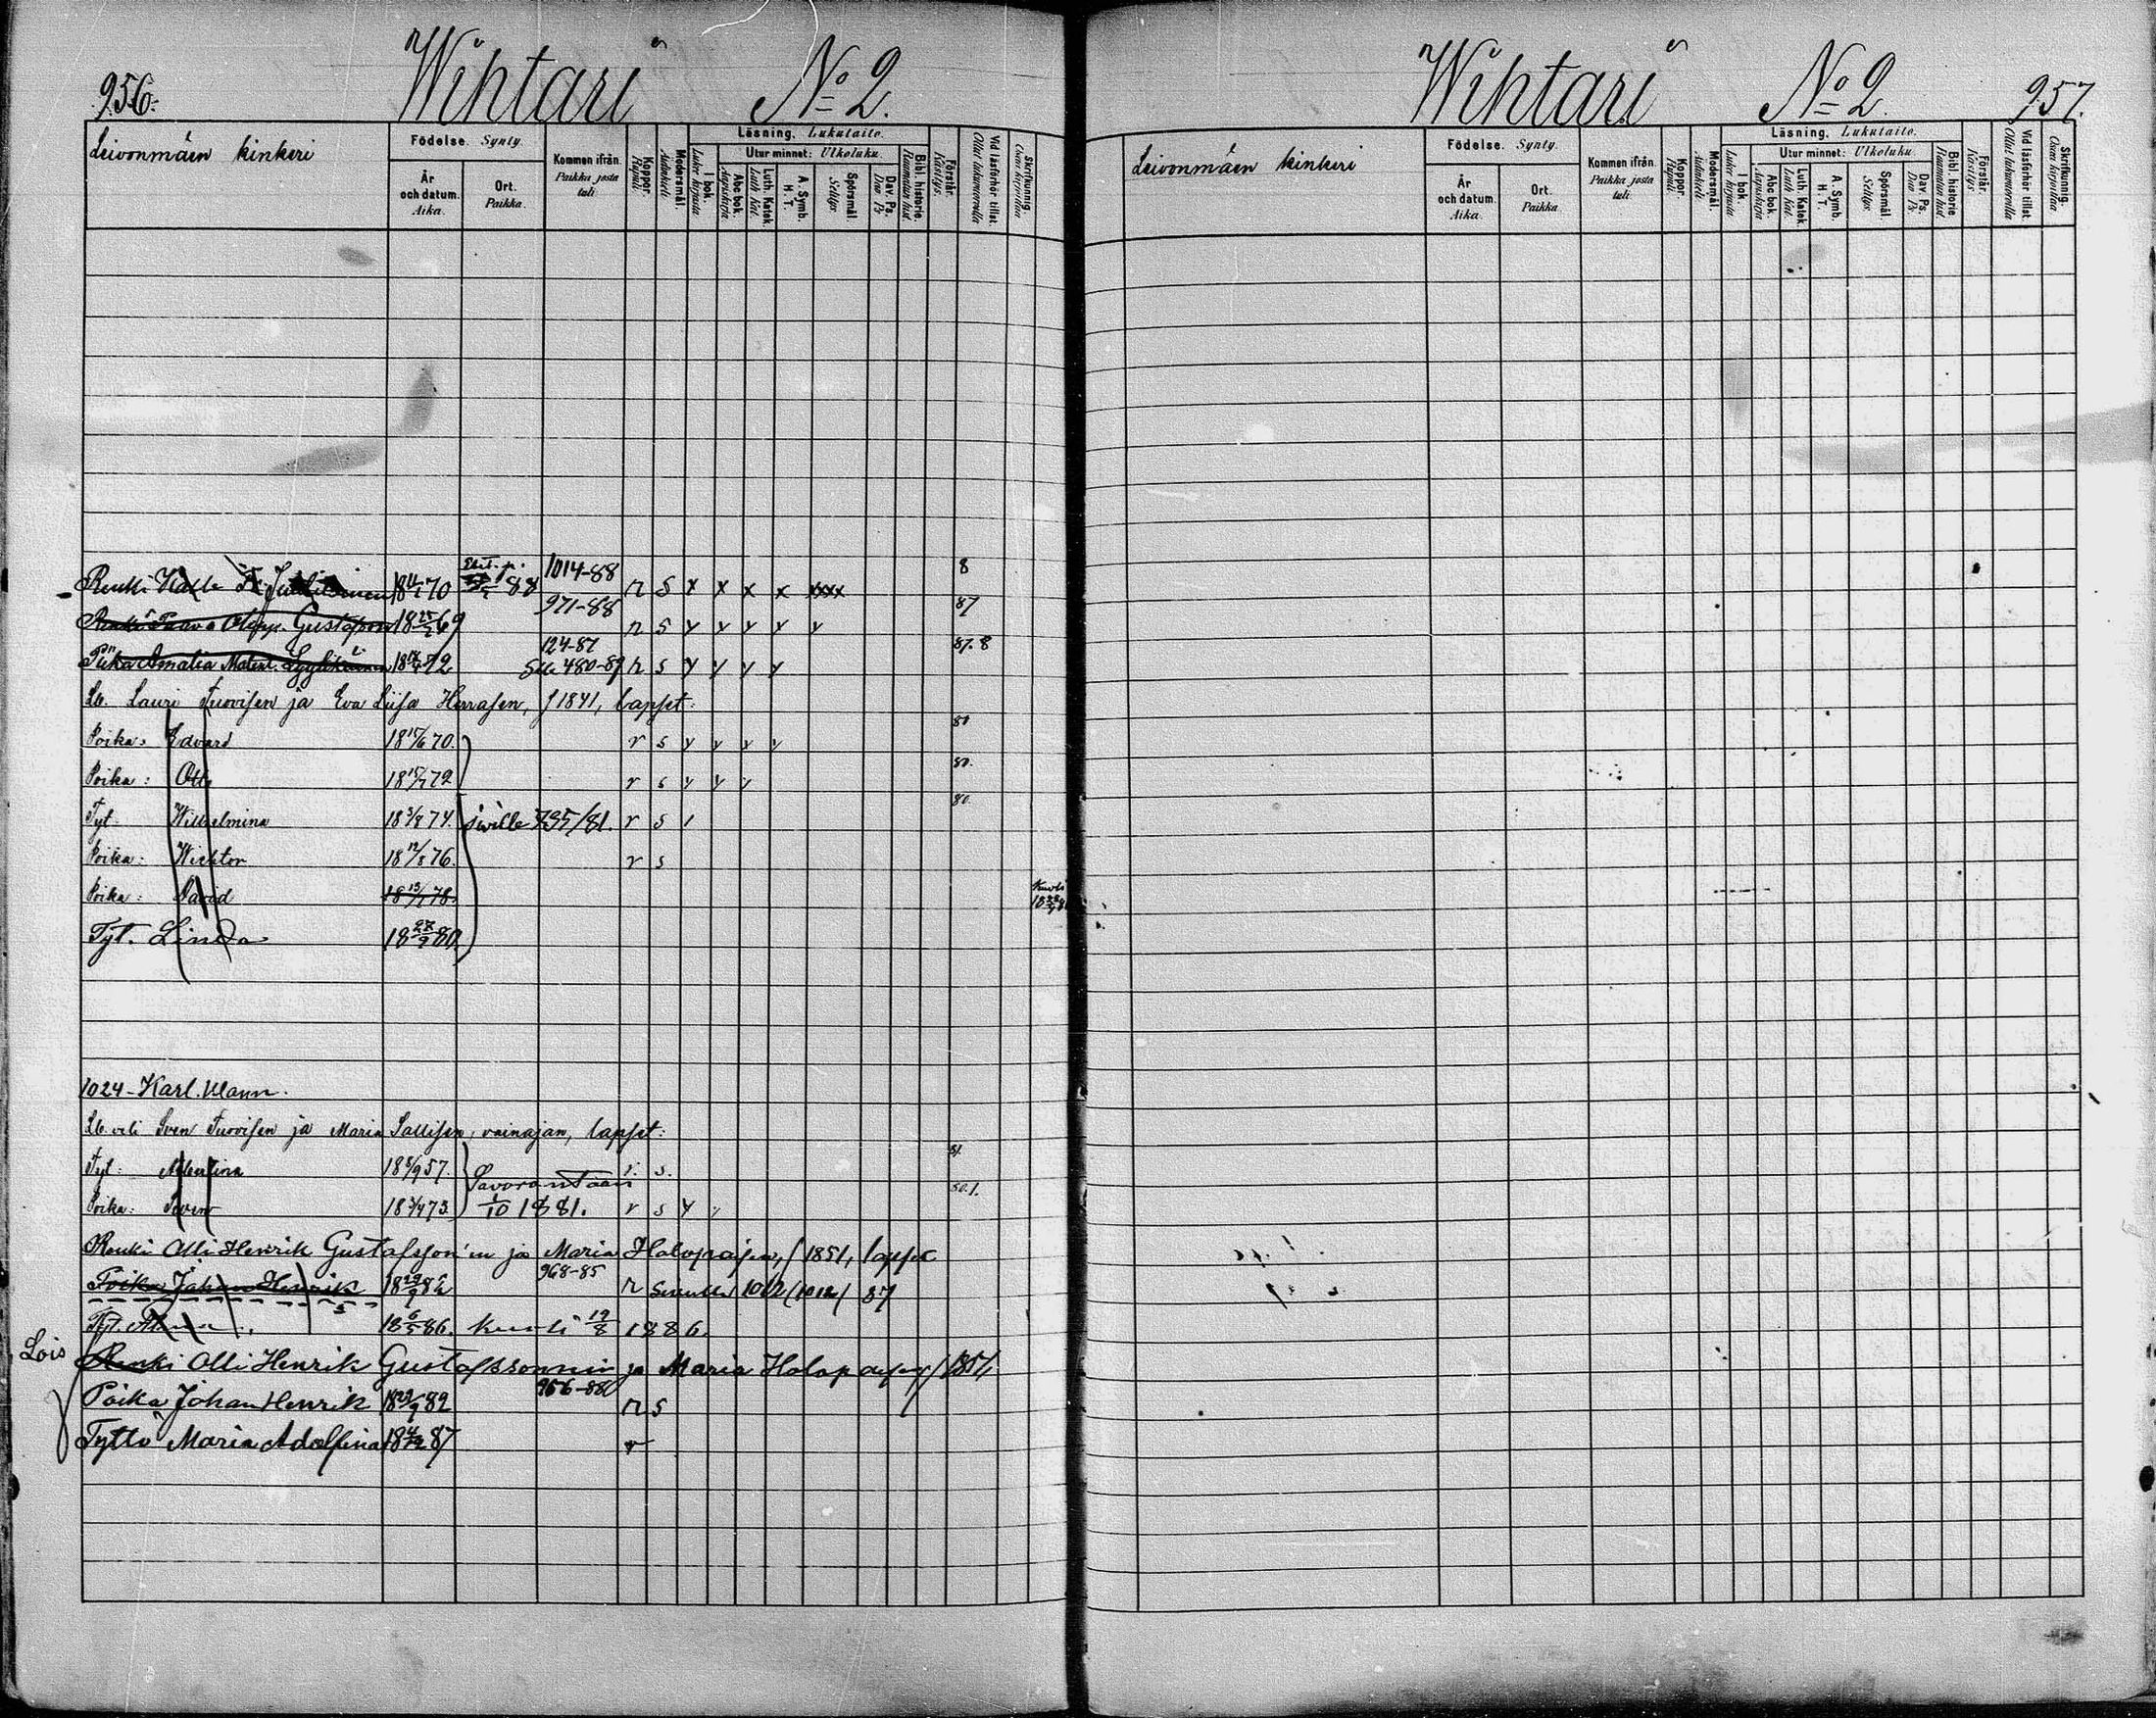 956.
Wihtari No 2.
Leivonmäen kinkeri
Födelse. Synty.
År och datum. Aika.
Ort. Paikka.
Kommen ifrån. Paikka josta tuli
Koppor. Rupuli.
Modersmål. Äidinkieli
Läsning. Lukutaito.
I bok. Lukee kirjasta
Utur minnet: Ulkoluku.
Abc bok. Aapiskirja
Luth. Katek. Luth. Kat.
A. Symb. H. T.
Spörsmål. Selitys
Dav. Ps. Daw. Ps
Bibl. historie
Förstår. Käsitys.
Vid läsförhör tillst. Ollut lukuvuorolla
Skrifkunnig. Osaa kirjoittaa
1014-88 8
Renki Kalle 70 88 r s x x x x xxxx
971-88 87
Renki Paavo Gustafson 18 25/2 69 r s y y y y y
124-87 87.8
Piika Amalia 72 480-89 r s y y y y
Lauri Tuovisen ja Eva Liisa Herrasen, f 1841, lapset:
80
Poika: Edvard 70. r s y y y y
80.
Poika: Otto 72 r s y y y
80.
Tyt. Wilhelmina 74. siwulle 735/81. r s 1
Poika: Wiktor 76. r s
Poika: David 78. Kuoli
Tyt. Linda 80
1024-Karl. Mann.
veli Sven Tuovisen ja Maria Sallisen, vainajan, lapset:
81
Tyt: Albertina 57. Savorantaan r. s.
80.1.
Poika: Sven 73. 1/10 1881. r s y
Renki Olli Henrik Gustafsson'in ja Maria Holopaisen, f 1851, lapset
968-85
Poika Johan Henrik 18 29/9 82 r Sivulle 1012 (1012) 87
Tyt. 18 6/5 86. kuoli 19/8 1886.
Lois Renki Olli Henrik Gustafssonnin ja Maria Holopaisen f 1851
956-88
Poika Johan Henrik 18 29/9 82 r s
Tyttö Maria Adolfina 87 r
Wihtari No 2. 957.
Leivonmäen kinkeri
Födelse. Synty.
År och datum. Aika.
Ort. Paikka
Kommen ifrån. Paikka josta tuli.
Koppor. Rupuli.
Modersmål. Äidinkieli
Läsning. Lukutaito.
I bok. Lukee kirjasta
Utur minnet: Ulkoluku.
Abc bok. Aapiskirja
Luth. Katek. Luth. Kat.
A. Symb. H. T.
Spörsmål. Selitys
Dav. Ps. Daw. Ps
Bibl. historie
Förstår. Käsitys
Vid läsförhör tillst. Ollut lukuvuorolla
Skrifkunnig. Osaa kirjoittaa